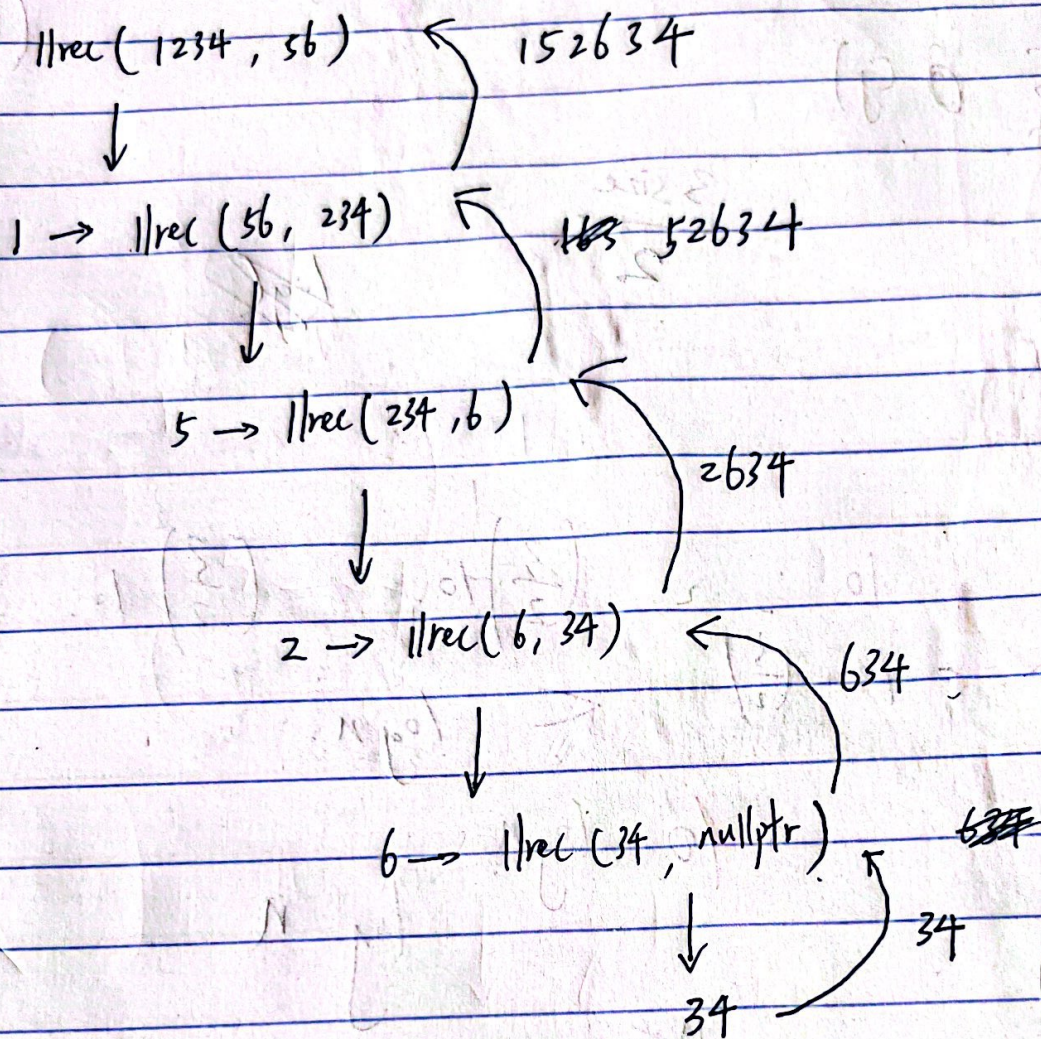 llrec( 1234 , 56 ) 152634
1 → llrec (56, 234) 52634
5 → llrec( 234 ,6 )
2634
2 → llrec( 6, 34)
634
6 → llrec (34, nullptr)
34
34